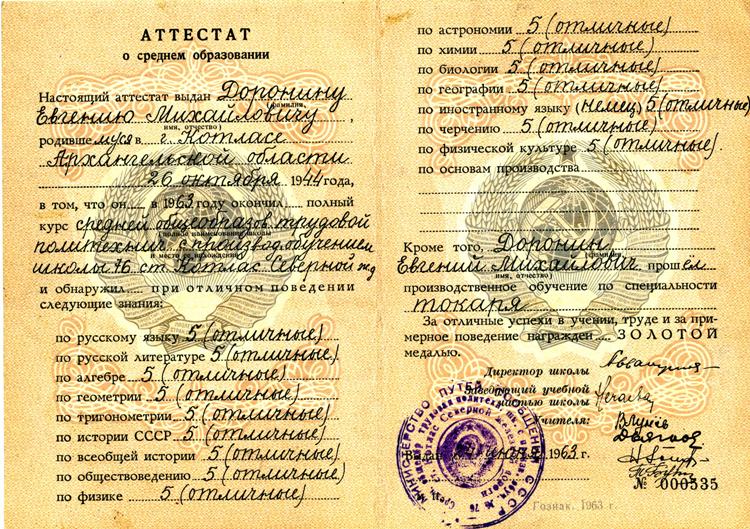 АТТЕСТАТ
о среднем образовании
Настоящий аттестат выдан Доронину
(фамилия,
Евгению Михайловичу,
имя, отчество)
родившемуся в г. Котласе
Архангельской области
26 октября 1944 года,
в том, что он в 1963 году окончил полный
курс средней общеобразов. трудовой
(полное наименование школы
политехнич. с производ. обучением
и место ее нахождения)
школы 76 ст. Котлас Северной жд
и обнаружил при отличном поведении
следующие знания:
по русскому языку 5 (отличные)
по русской литературе 5 (отличные)
по алгебре 5 (отличные)
по геометрии 5 (отличные)
по тригонометрии 5 (отличные)
по истории СССР 5 (отличные)
по всеобщей истории 5 (отличные)
по обществоведению 5 (отличные)
по физике 5 (отличные)
по астрономии 5 (отличные)
по химии 5 (отличные)
по биологии 5 (отличные)
по географии 5 (отличные)
по иностранному языку (немец) 5 (отличные)
по черчению 5 (отличные)
по физической культуре 5 (отличные).
по основам производства
Кроме того, Доронин
(фамилия,
Евгений Михайлович прошел
имя, отчество)
производственное обучение по специальности
токаря
За отличные успехи в учении, труде и за при-
мерное поведение награжден ЗОЛОТОЙ
медалью.
Директор школы
Заведующий учебной
частью школы
Учителя:
МИНИСТЕРСТВО ПУТЕЙ СООБЩЕНИЯ СССР
Выдан июня 1963 г.
№ 000535
Гознак. 1963 г.